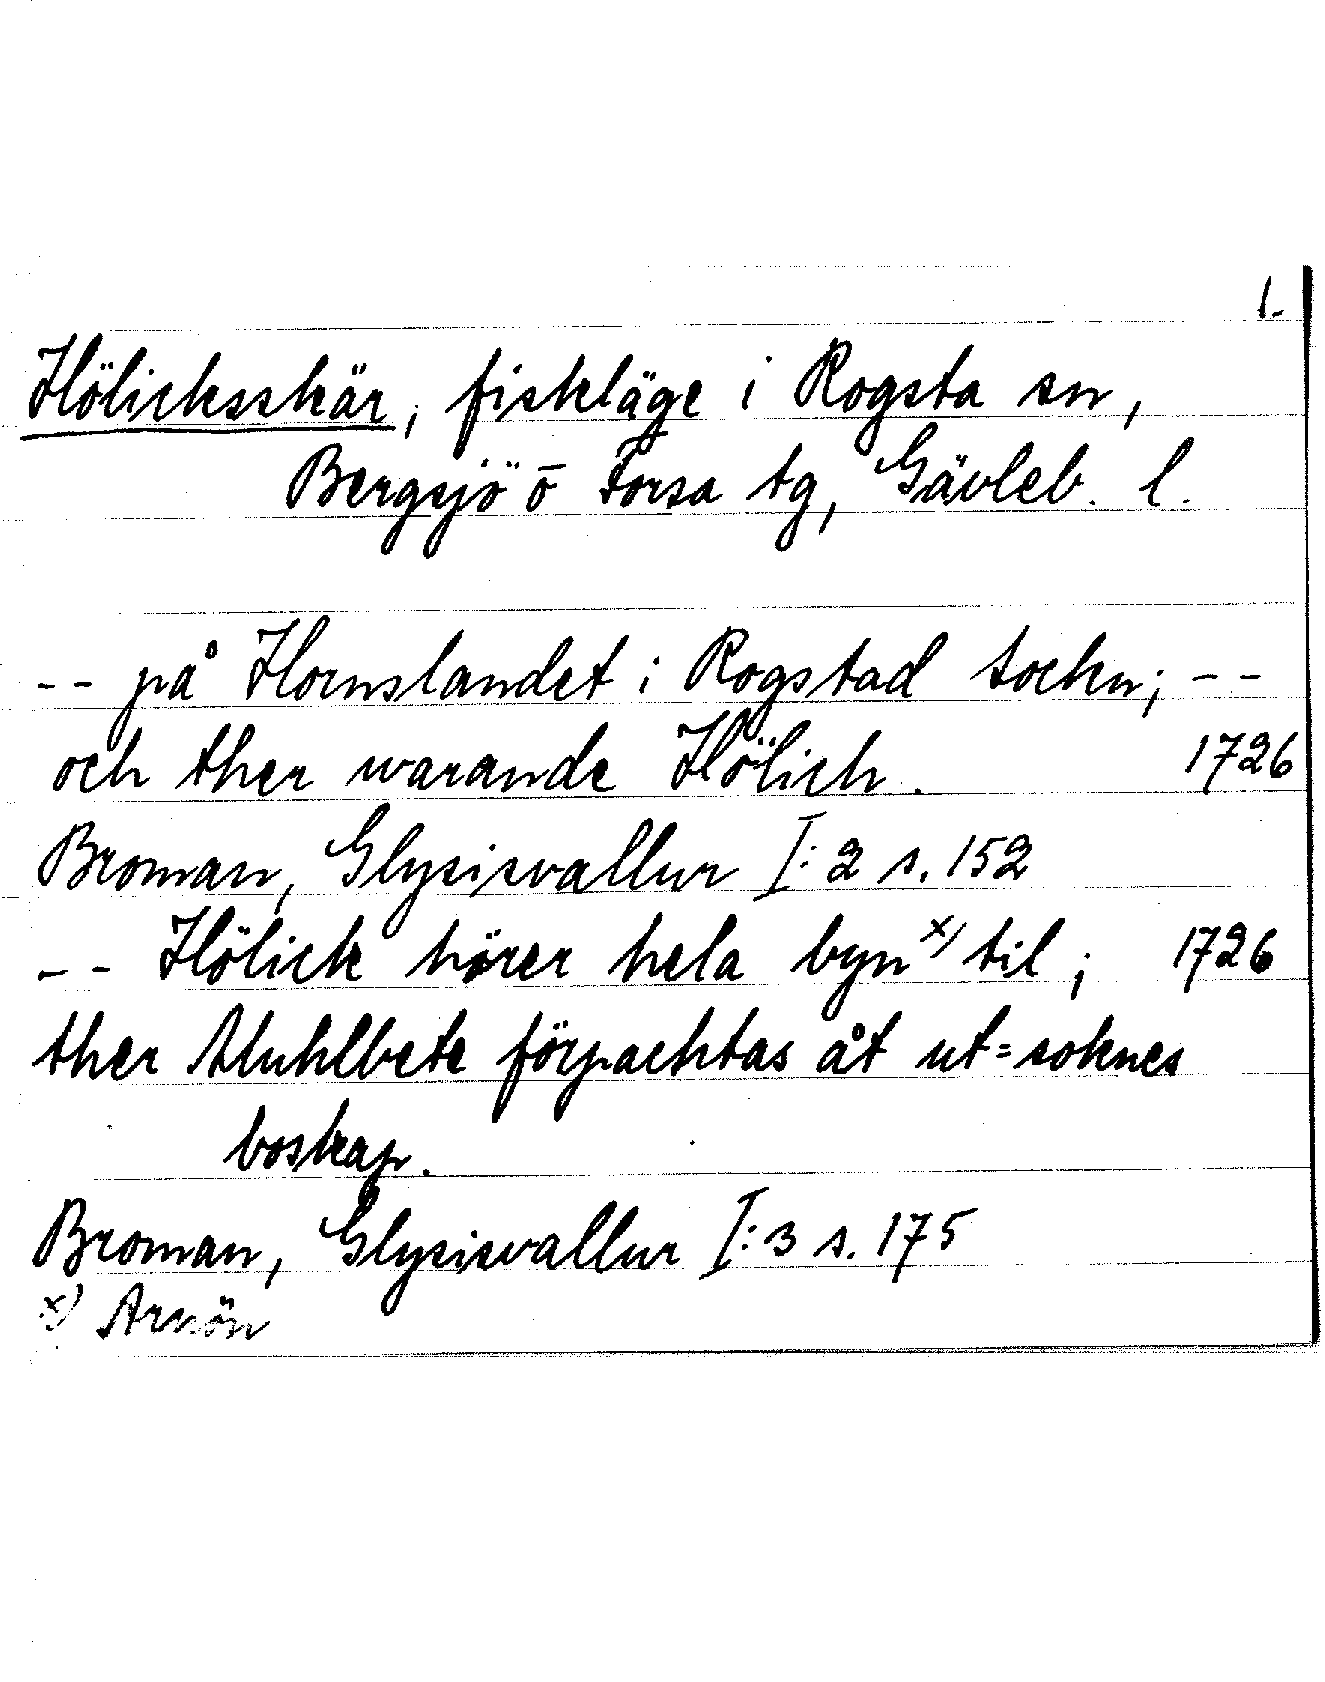 1.
Hölicksskär, fiskläge i Rogsta sn,
Bergsjö o Forsa tg, Gävleb. l.
-- på Hornslandet i Rogstad sockn; --
och ther warande Hölich. 1726
Broman, Glysisvallur I:2 s. 152
-- Hölick hörer hela byn x) til; 1726
ther Muhlbete förpachtas åt ut=soknes
boskap.
Broman, Glysisvallur I:3 s. 175
x) Arnön